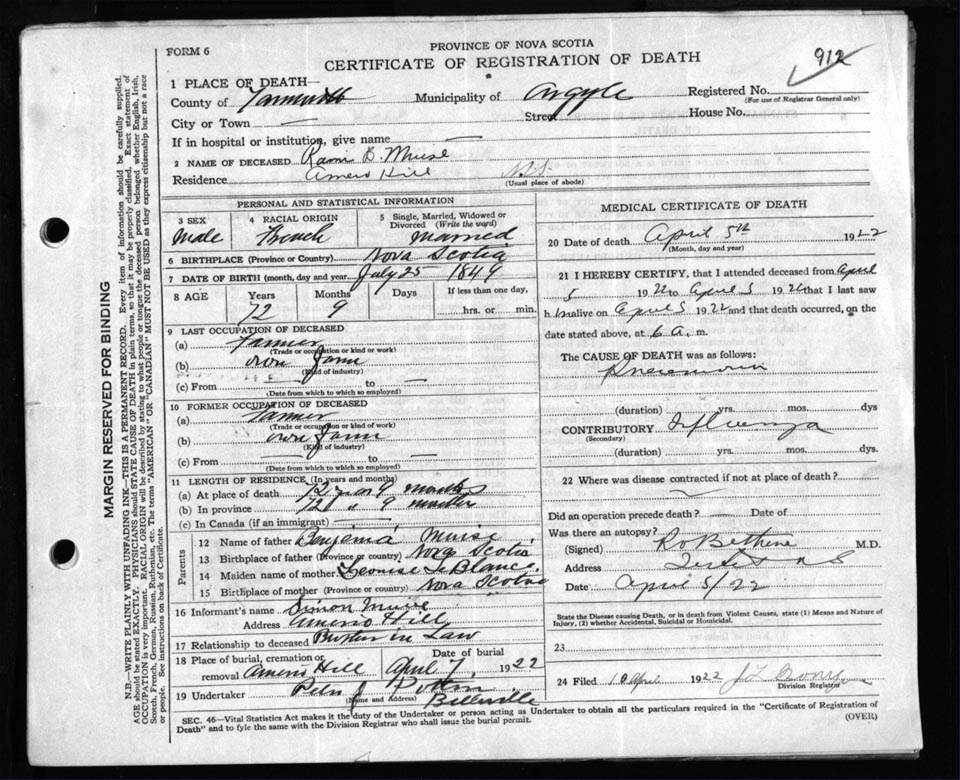 FORM 6
PROVINCE OF NOVA SCOTIA
CERTIFICATE OF REGISTRATION OF DEATH
912
1 PLACE OF DEATH—
County of Yarmouth Municipality of Argyle Registered No.
(For use of Registrar General only)
City or Town — Street House No.
If in hospital or institution, give name —
2 NAME OF DECEASED Remi B. Muise
Residence Amero Hill N.S.
(Usual place of abode)
PERSONAL AND STATISTICAL INFORMATION
3 SEX 4 RACIAL ORIGIN 5 Single, Married, Widowed or Divorced (Write the word)
Male French Married
6 BIRTHPLACE (Province or Country) Nova Scotia
7 DATE OF BIRTH (month, day and year) July 25 1849
8 AGE Years Months Days If less than one day,
72 9 hrs. or min.
9 LAST OCCUPATION OF DECEASED
(a) Farmer
(Trade or occupation or kind of work)
(b) own farm
(Kind of industry)
(c) From — to —
(Date from which to which so employed)
10 FORMER OCCUPATION OF DECEASED
(a) Farmer
(Trade or occupation or kind of work)
(b) own farm
(Kind of industry)
(c) From — to —
(Date from which to which so employed)
11 LENGTH OF RESIDENCE (In years and months)
(a) At place of death 72 9 months
(b) In province 72 " 9 months
(c) In Canada (if an immigrant) —
Parents
12 Name of father Benjamin Muise
13 Birthplace of father (Province or country) Nova Scotia
14 Maiden name of mother LeBlanc
15 Birthplace of mother (Province or country) Nova Scotia
16 Informant's name Simon Muise
Address Amero Hill
17 Relationship to deceased Brother in Law
18 Place of burial, cremation or removal Amero Hill Date of burial April 7, 1922
19 Undertaker Peter J Pottier Belleville
(Name and Address)
MEDICAL CERTIFICATE OF DEATH
20 Date of death April 5th 1922
(Month, day and year)
21 I HEREBY CERTIFY, that I attended deceased from April
5 1922 to April 5 1922 that I last saw
h im alive on April 5 1922 and that death occurred, on the
date stated above, at 6 a. m.
The CAUSE OF DEATH was as follows:
Pneumonia
(duration) yrs. mos. dys
CONTRIBUTORY Influenza
(Secondary)
(duration) yrs. mos. dys.
22 Where was disease contracted if not at place of death?
Did an operation precede death? — Date of
Was there an autopsy?
(Signed) Bethune M.D.
Address Tusket N S
Date April 5/22
State the Disease causing Death, or in death from Violent Causes, state (1) Means and Nature of
Injury, (2) whether Accidental, Suicidal or Homicidal.
23
24 Filed 10 April 1922
Division Registrar
SEC. 46—Vital Statistics Act makes it the duty of the Undertaker or person acting as Undertaker to obtain all the particulars required in the "Certificate of Registration of
Death" and to fyle the same with the Division Registrar who shall issue the burial permit.
(OVER)
MARGIN RESERVED FOR BINDING
N.B.—WRITE PLAINLY WITH UNFADING INK—THIS IS A PERMANENT RECORD. Every item of information should be carefully supplied.
AGE should be stated EXACTLY. PHYSICIANS should STATE CAUSE OF DEATH in plain terms, so that it may be properly classified. Exact statement of
OCCUPATION is very important. RACIAL ORIGIN will be described by stating to what people or tongue the deceased person belonged whether English, Irish,
Scotch, French, German, Russian, Ruthenian, etc. The terms "AMERICAN" OR "CANADIAN" MUST NOT BE USED as they express citizenship but not a race
or people. See instructions on back of Certificate.